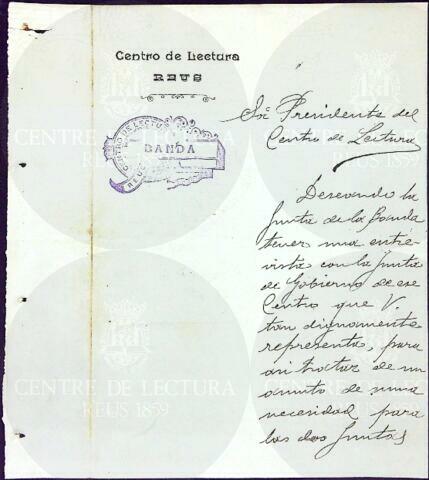 Centro de Lectura
REUS
CENTRO DE LECTURA
BANDA
REUS
Sr. Presidente del
Centro de Lectura
Deseando la
Junta de la Banda
tener una entre-
vista con la Junta
de Gobierno de ese
Centro que V.
tan dignamente
representa, para
tractar de un
asunto de suma
necesidad para
las dos Juntas
CENTRE DE LECTURA
REUS 1859